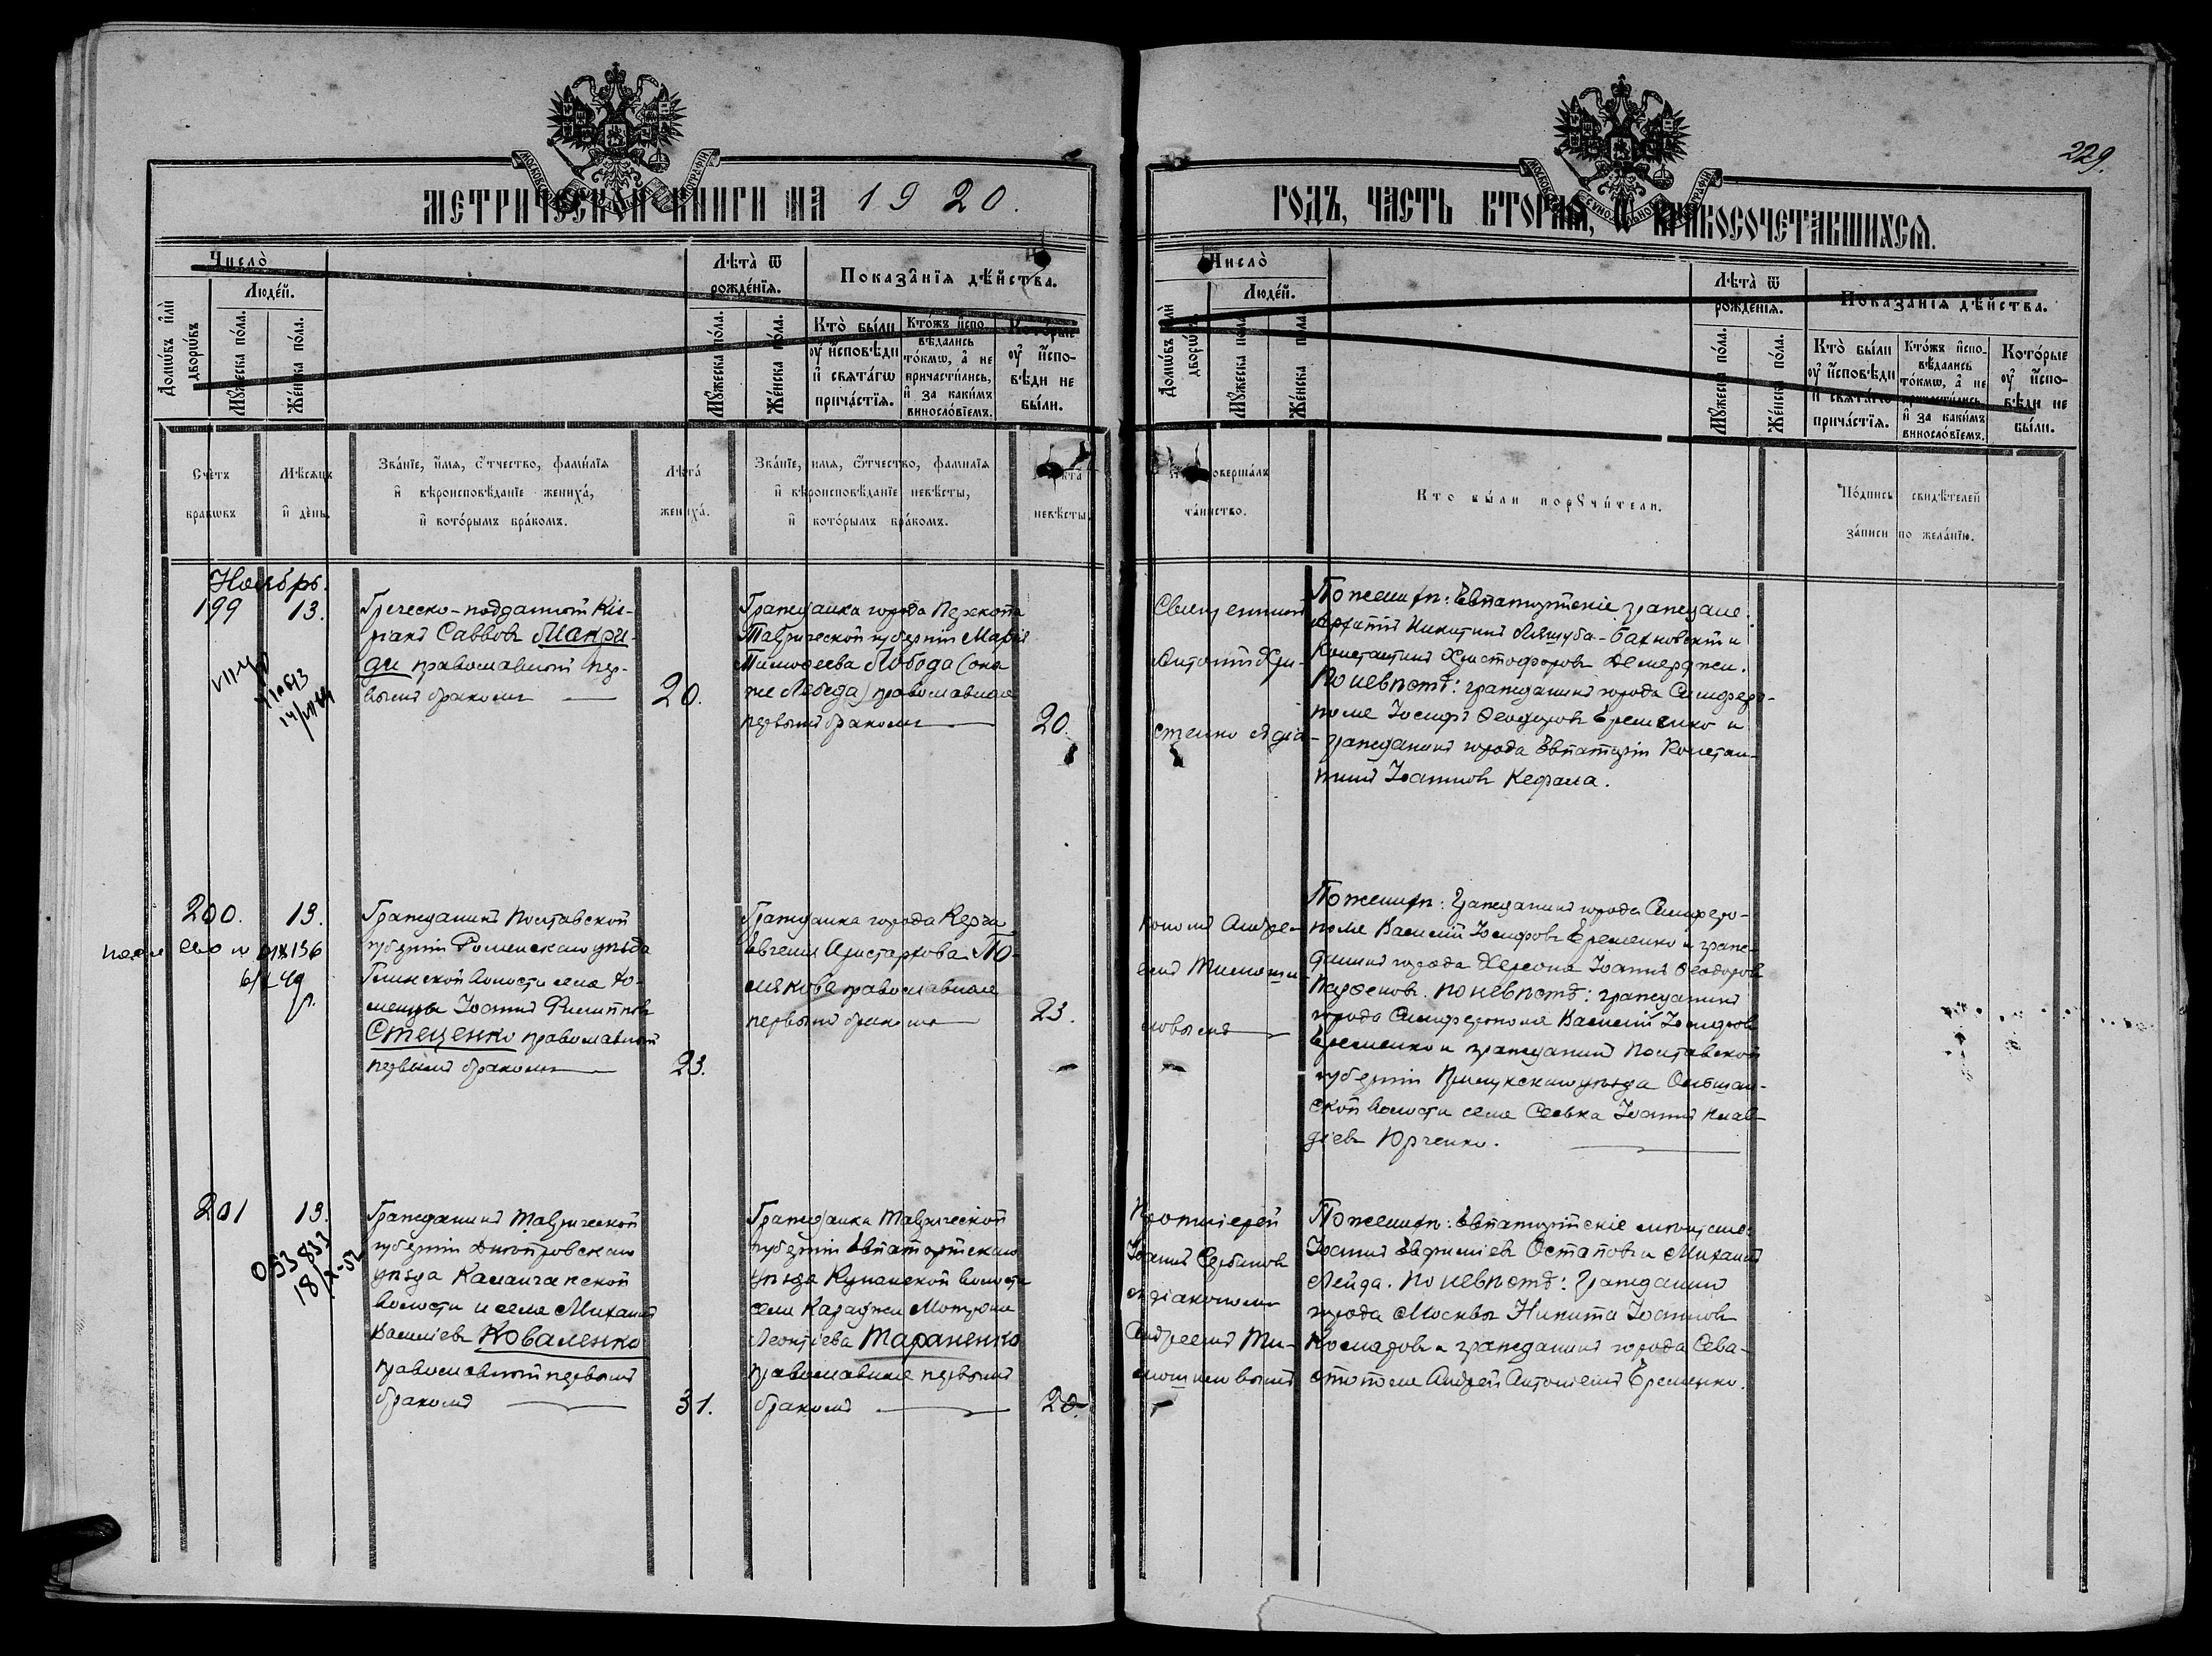 229.
МЕТРИЧЕСКОЙ КНИГИ НА 1920.
ГОДЪ, ЧАСТЬ ВТОРАЯ, О БРАКОСОЧЕТАВШИХСЯ.
Число̀
Людє́й.
Домѡ́въ и҆лѝ дворѡ́въ
Му́жеска по́ла.
Же́нска по́ла.
Лѣта̀ ѿ рожде́нїѧ.
Му́жеска по́ла.
Же́нска по́ла.
Показа̑нїѧ дѣ́йства.
Кто̀ бы́ли оу҆ и҆сповѣ́ди и҆ свѧта́гѡ прича́стїѧ.
Кто́жъ и҆сповѣ́дались то́кмѡ, а҆ не причасти́лись, и҆ за каки́мъ виносло́вїемъ.
Кото́рые оу҆ и҆сповѣ́ди не бы́ли.
Число̀
Людє́й.
Домѡ́въ и҆лѝ дворѡ́въ
Му́жеска по́ла.
Же́нска по́ла.
Лѣта̀ ѿ рожде́нїѧ.
Му́жеска по́ла.
Же́нска по́ла.
Показа̑нїѧ дѣ́йства.
Кто̀ бы́ли оу҆ и҆сповѣ́ди и҆ свѧта́гѡ прича́стїѧ.
Кто́жъ и҆сповѣ́дались то́кмѡ, а҆ не причасти́лись, и҆ за каки́мъ виносло́вїемъ.
Кото́рые оу҆ и҆сповѣ́ди не бы́ли.
Сче́тъ бракѡвъ
Мѣ́сѧцъ и҆ де́нь.
Зва́нїе, и҆́мѧ, ѻ҆́тчество, фами́лїѧ
и҆ вѣроисповѣ́данїе жениха̀,
и҆ кото́рымъ бра́комъ.
Лѣта̀ жениха̀.
Зва́нїе, и҆́мѧ, ѻ҆́тчество, фами́лїѧ
и҆ вѣроисповѣ́данїе невѣ́сты,
и҆ кото́рымъ бра́комъ.
Лѣта̀ невѣ́сты.
Кто̀ соверша́лъ та́инство.
Кто̀ бы́ли поручи́тели.
По́дпись свидѣ́телей
за́писи по жела́нїю.
Ноябрь.
199
13.
Греческо-подданный Кі-
ріакъ Саввовъ Макри-
ди православный пер-
вымъ бракомъ
20.
Гражданка города Перекопа
Таврической губерніи Марія
Тимоѳеева Лобода (она
же Лебеда) православная
первымъ бракомъ
20.
Священникъ
Антоній Хри-
стенко и діа-
По женихѣ: Евпаторійскіе граждане:
Никитинъ и
Константинъ Христофоровъ Демерджи.
По невѣстѣ: гражданинъ города Симферо-
поля Іосифъ Ѳеодоровъ Еременко и
гражданинъ города Евпаторіи Констан-
тинъ Іоанновъ Кефала.
200.
13.
Гражданинъ Полтавской
губерніи Роменскаго уѣзда
Глинской волости села
Іоаннъ Филипповъ
Стеценко православный
первымъ бракомъ
23.
Гражданка города Керчи
Евгенія Аристархова По-
лякова православная
первымъ бракомъ
23.
кономъ Андре-
емъ Тимоши-
новымъ
По женихѣ: Гражданинъ города Симферо-
поля Василій Іосифовъ Еременко и граж-
данинъ города Херсона Іоаннъ Ѳеодоровъ
Парѳеновъ. По невѣстѣ: гражданинъ
города Симферополя Василій Іосифовъ
Еременко и гражданинъ Полтавской
губерніи Прилукскаго уѣзда Ольшан-
ской волости села Іоаннъ Клав-
діевъ Юрченко.
201
13.
053833
18/X-52
Гражданинъ Таврической
губерніи Днѣпровскаго
уѣзда Каланчакской
волости и села Михаилъ
Васильевъ Коваленко
православный первымъ
бракомъ
31.
Гражданка Таврической
губерніи Евпаторійскаго
уѣзда Кунанской волости
села Караджи
Леонтіева Тараненко
православная первымъ
бракомъ
20.
Протоіерей
Іоаннъ Сербиновъ
съ діакономъ
Андреемъ Ти-
мошиновымъ
По женихѣ: Евпаторійскіе мѣщане:
Іоаннъ Евфиміевъ Остаповъ и Михаилъ
Лейда. По невѣстѣ: Гражданинъ
города Москвы Никита Іоанновъ
Комаровъ и гражданинъ города Сева-
стополя Андрей Антоніевъ Еременко.